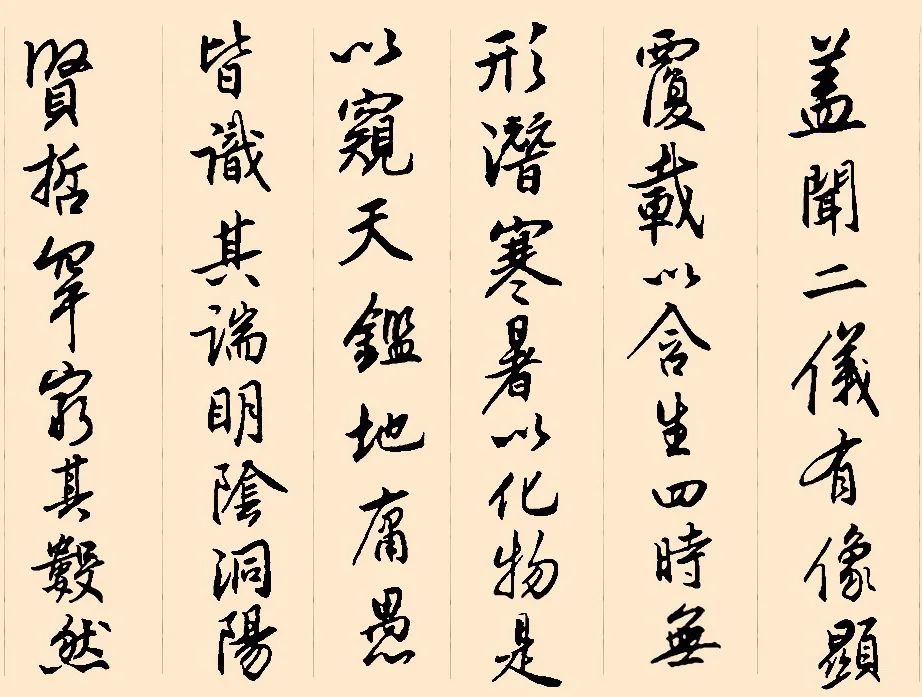 盖聞二儀有像顯
覆載以含生四時無
形潛寒暑以化物是
以窺天鑑地庸愚
皆識其端明陰洞陽
賢哲罕窮其數然